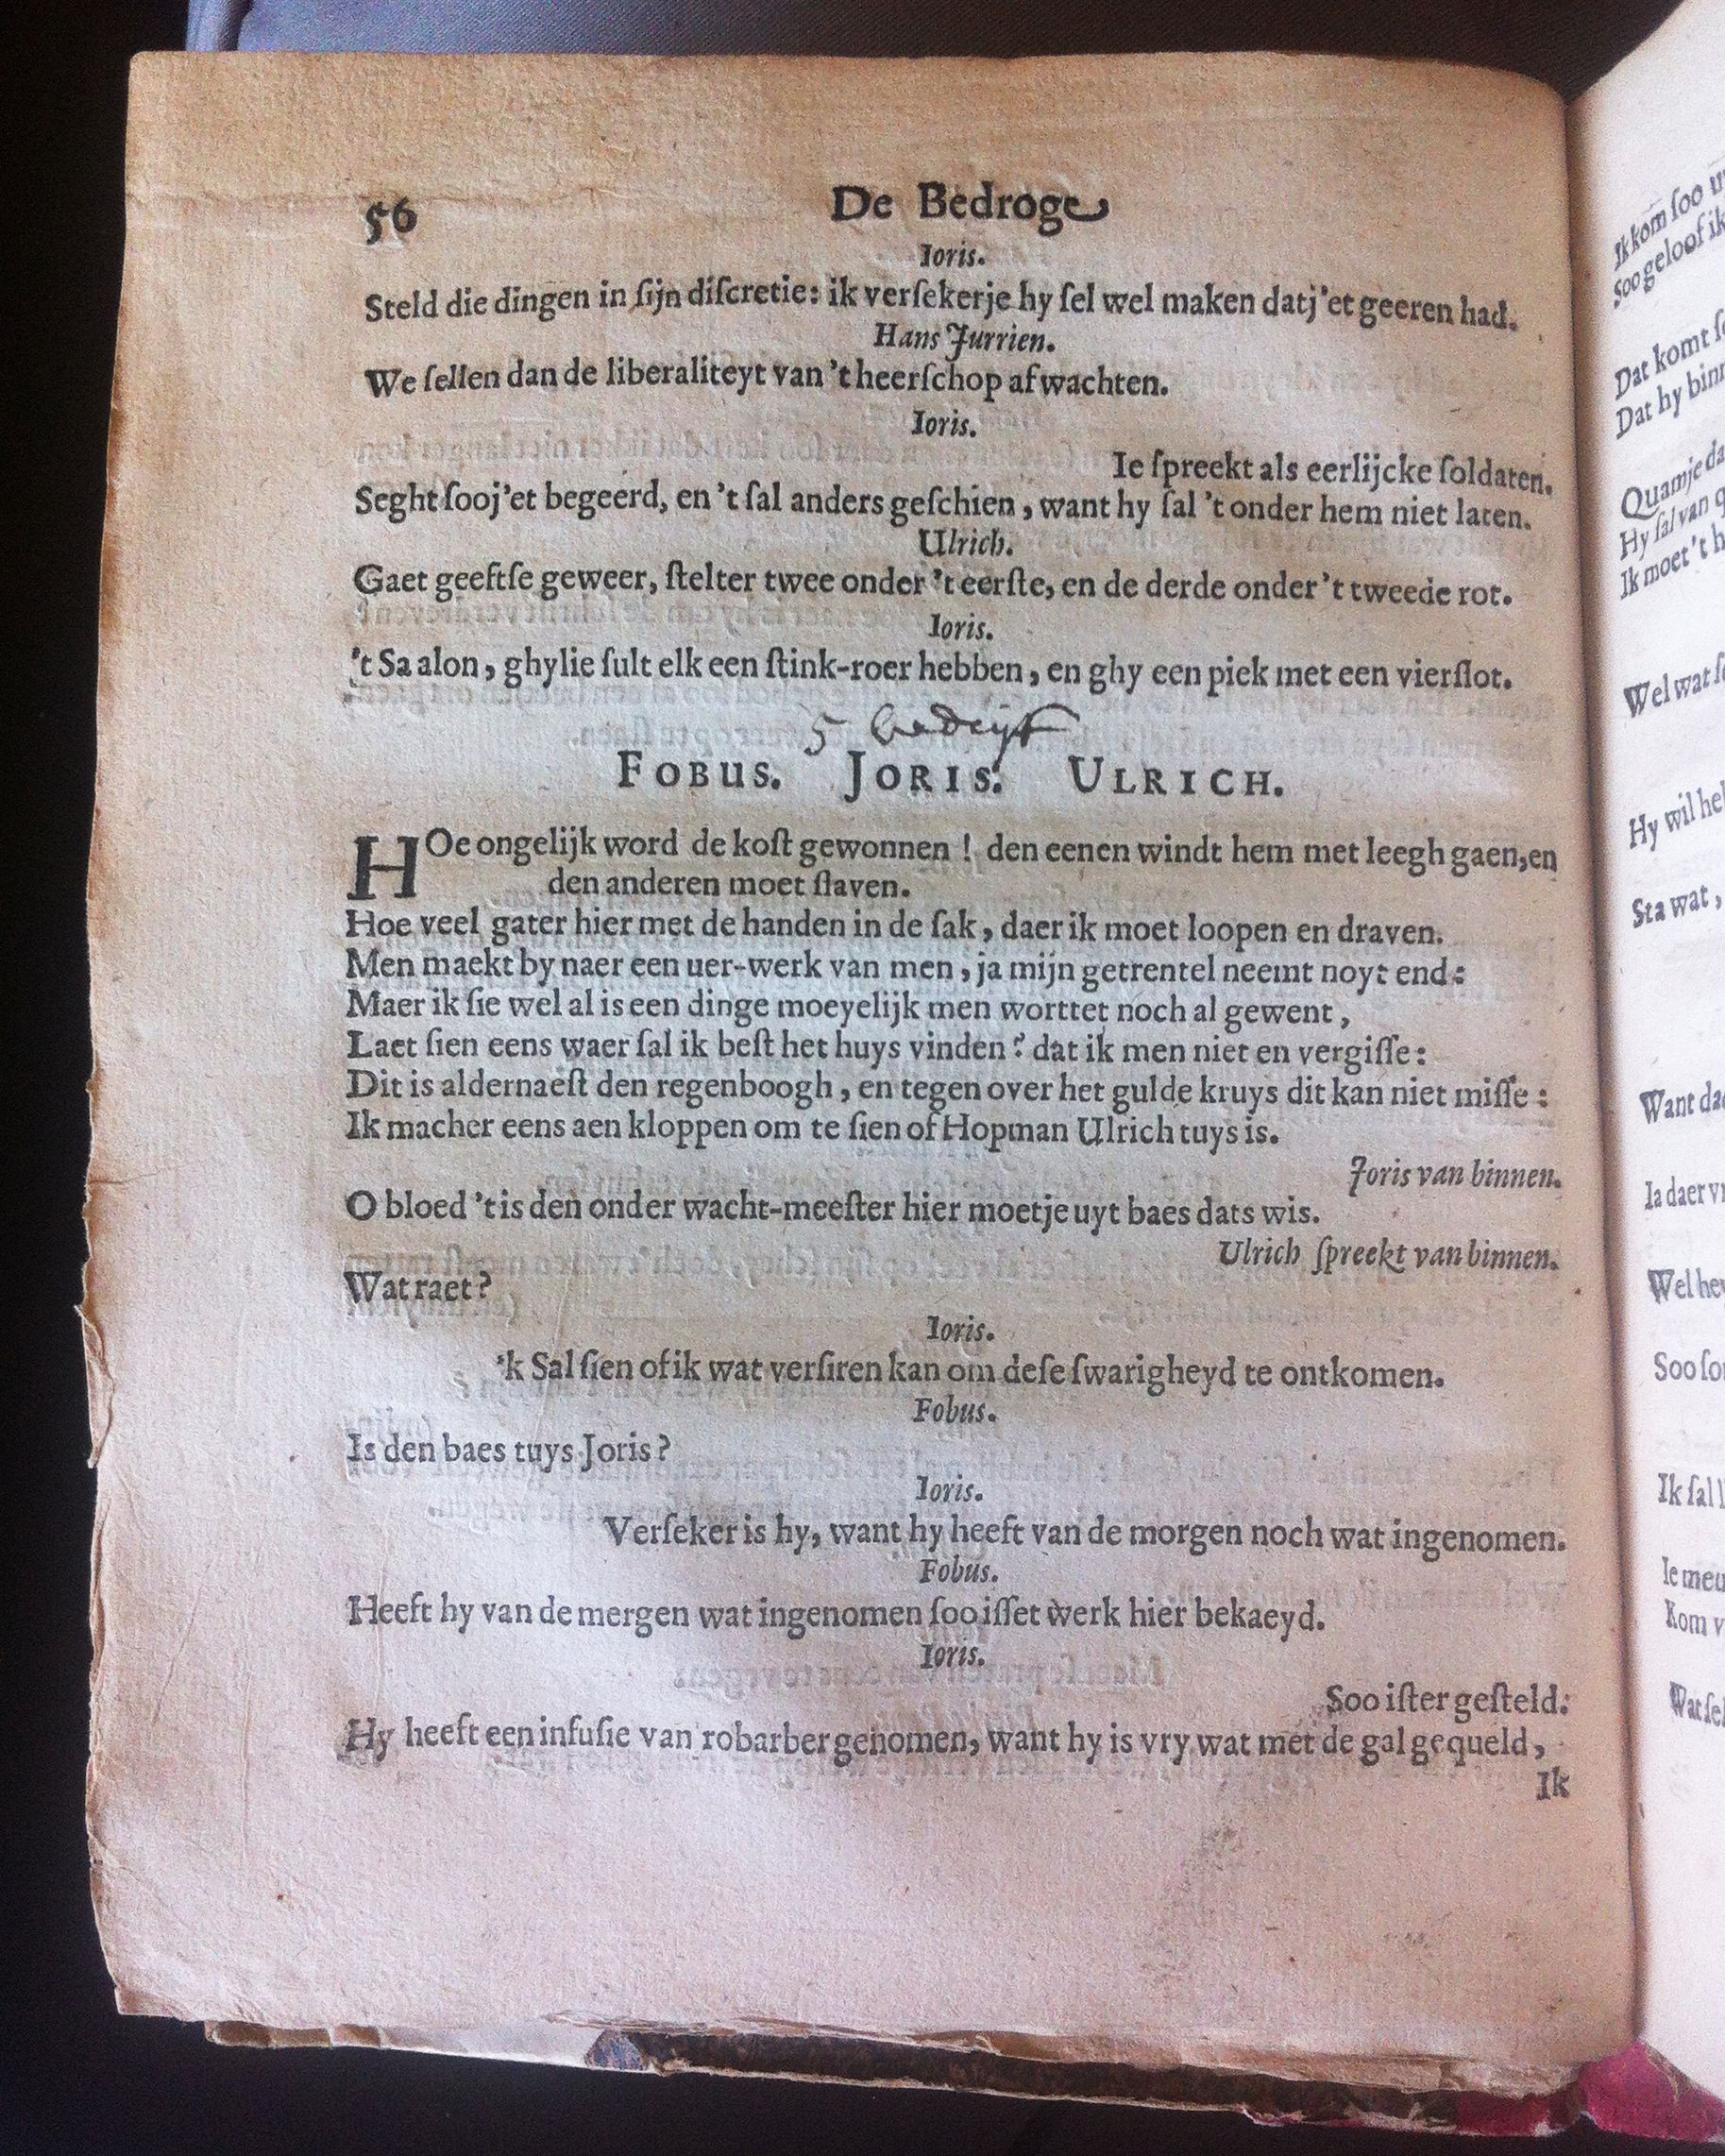 56 De Bedroge
Ioris.
Steld die dingen in ſijn diſcretie: ik verſekerje hy ſel wel maken datj'et geeren had.
Hans Jurrien.
We ſellen dan de liberaliteyt van 't heerſchop afwachten.
Ioris.
Ie ſpreekt als eerlijcke ſoldaten.
Seght ſooj'et begeerd, en 't ſal anders geſchien, want hy ſal 't onder hem niet laten.
Ulrich.
Gaet geeftſe geweer, ſtelter twee onder 't eerſte, en de derde onder 't tweede rot.
Ioris.
't Sa alon, ghylie ſult elk een ſtink-roer hebben, en ghy een piek met een vierſlot.
5 bedrijf
FOBUS. JORIS. ULRICH.
HOe ongelijk word de koſt gewonnen! den eenen windt hem met leegh gaen, en
den anderen moet ſlaven.
Hoe veel gater hier met de handen in de ſak, daer ik moet loopen en draven.
Men maekt by naer een uer-werk van men, ja mijn getrentel neemt noyt end:
Maer ik ſie wel al is een dinge moeyelijk men worttet noch al gewent,
Laet ſien eens waer ſal ik beſt het huys vinden? dat ik men niet en vergiſſe:
Dit is aldernaeſt den regenboogh, en tegen over het gulde kruys dit kan niet miſſe:
Ik macher eens aen kloppen om te ſien of Hopman Ulrich tuys is.
Joris van binnen.
O bloed 't is den onder wacht-meeſter hier moetje uyt baes dats wis.
Ulrich ſpreekt van binnen.
Wat raet?
Ioris.
'k Sal ſien of ik wat verſiren kan om deſe ſwarigheyd te ontkomen.
Fobus.
Is den baes tuys Joris?
Ioris.
Verſeker is hy, want hy heeft van de morgen noch wat ingenomen.
Fobus.
Heeft hy van de mergen wat ingenomen ſoo iſſet werk hier bekaeyd.
Ioris.
Soo iſter geſteld:
Hy heeft een infuſie van robarber genomen, want hy is vry wat met de gal gequeld,
Ik
Ik kom ſoo
Soo geloof ik
Dat komt
Dat hy
Quamje
Hy ſal van
Ik moet 't
Wel wat
Hy wil
Sta wat,
Want
Ia daer
Wel
Soo
Ik ſal
Ie
Kom